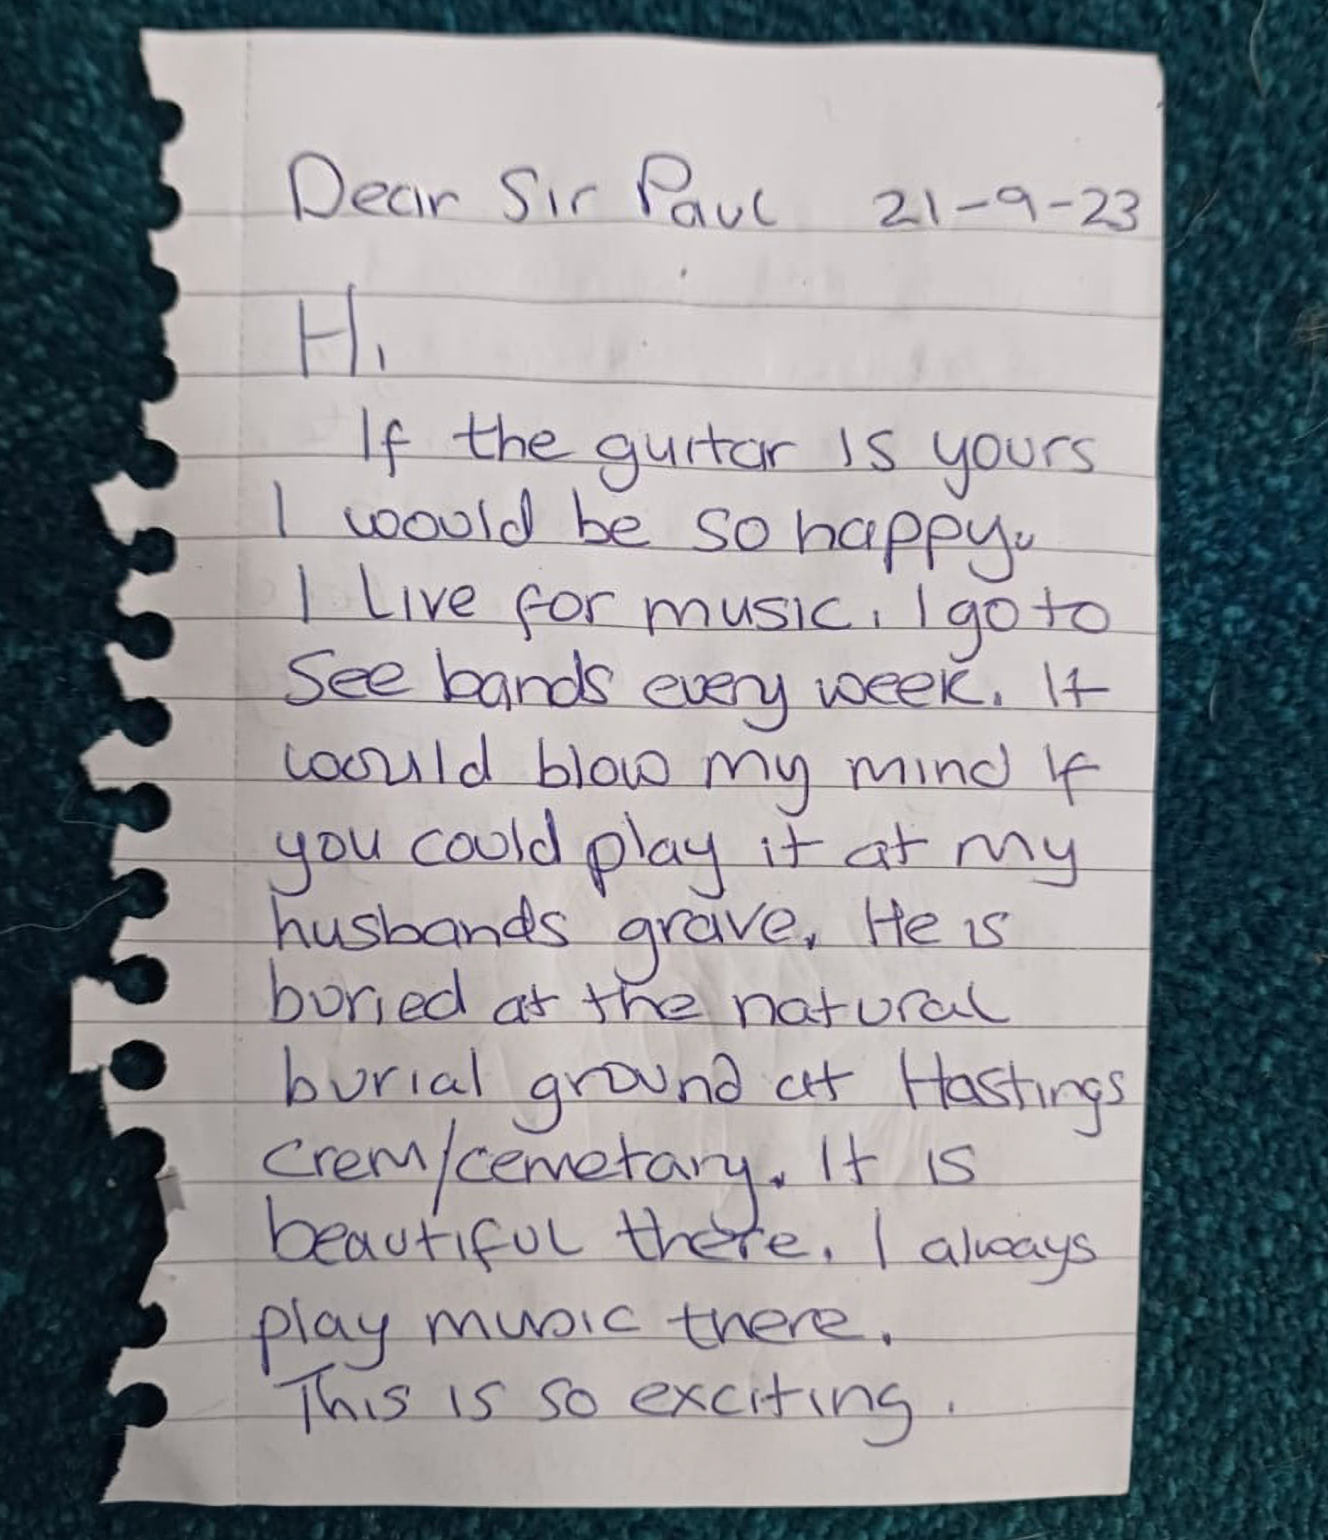 Dear Sir Paul 21-9-23
Hi
If the guitar is yours
I woould be so happy.
I Live for music. I go to
See bands every week. It
would blow my mind If
you could play it at my
husbands grave. He is
buried at the natural
burial ground at Hastings
crem/cemetary. It is
beautiful there. I always
play music there.
This is so exciting.